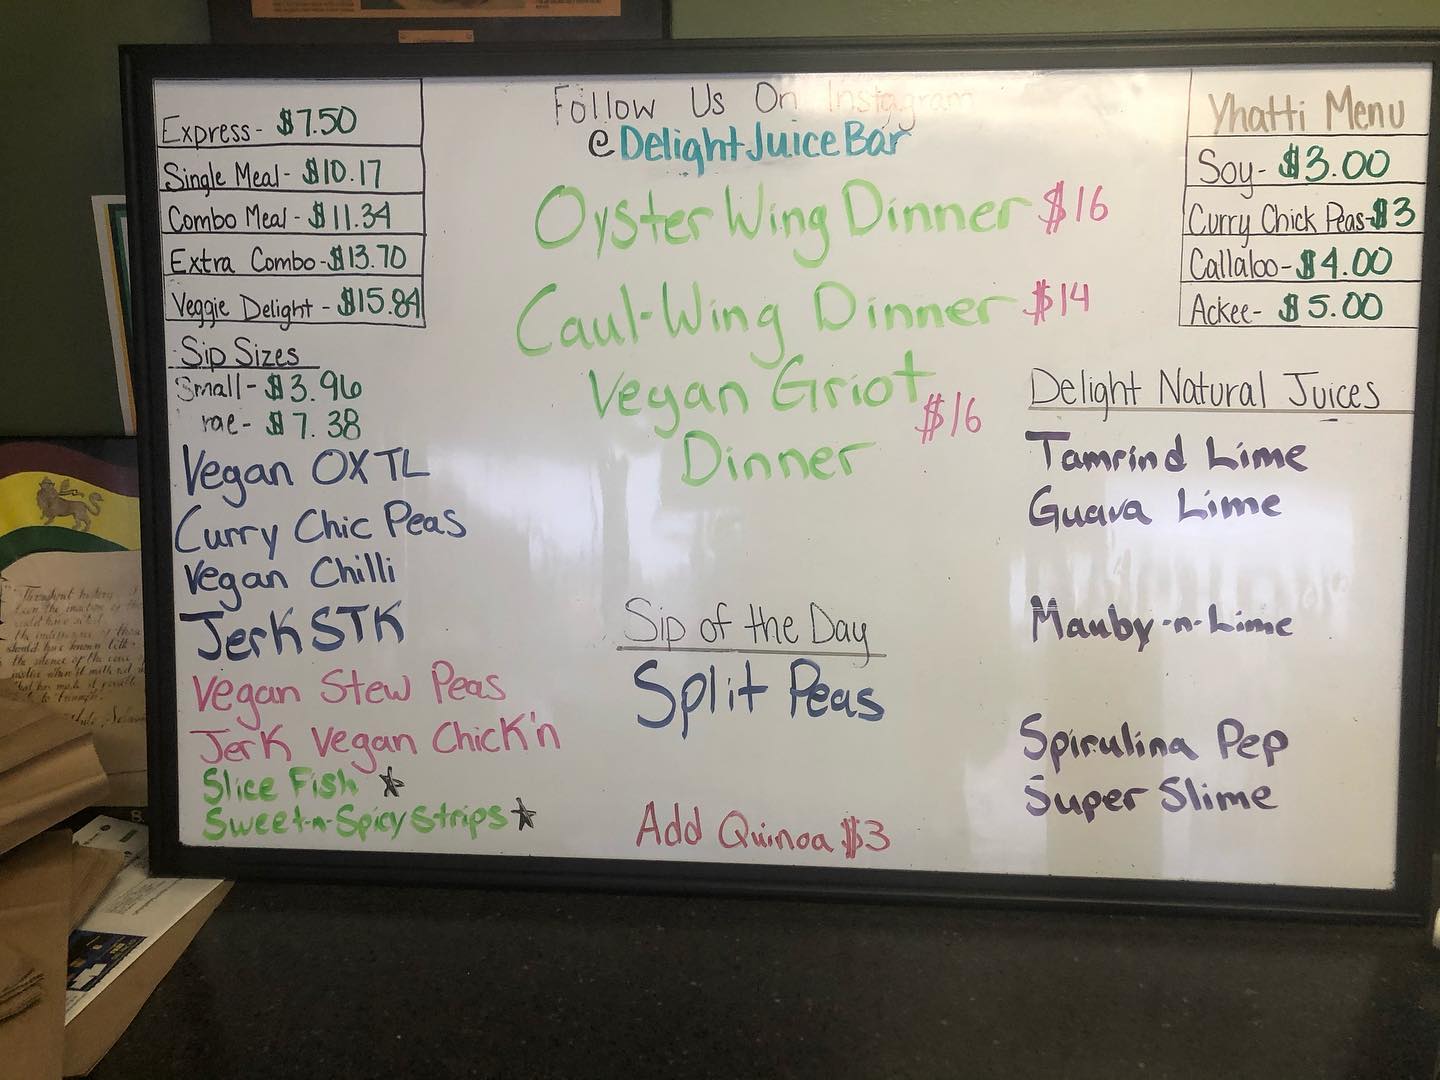 Express- $7.50
Single Meal- $10.17
Combo Meal- $11.34
Extra Combo-$13.70
Veggie Delight- $15.84
Sip Sizes
Small- $3.96
rge- $7.38
Vegan OXTL
Curry Chic Peas
Vegan Chilli
Jerk STK
Vegan Stew Peas
Jerk Vegan Chick'n
Slice Fish ★
Sweet-n-Spicy Strips ★
Follow Us On Instagram
@DelightJuiceBar
Oyster Wing Dinner $16
Caul-Wing Dinner $14
Vegan Griot
$16
Dinner
Sip of the Day
Split Peas
Add Quinoa $3
Yhatti Menu
Soy- $3.00
Curry Chick Peas-$3
Callaloo-$4.00
Ackee- $5.00
Delight Natural Juices
Tamrind Lime
Guava Lime
Mauby-n-Lime
Spirulina Pep
Super Slime
Throughout history